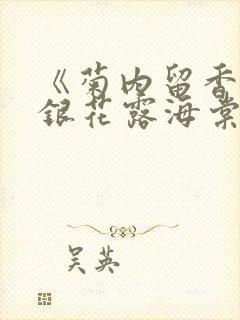 《菊内留香
银花露海棠
吴英